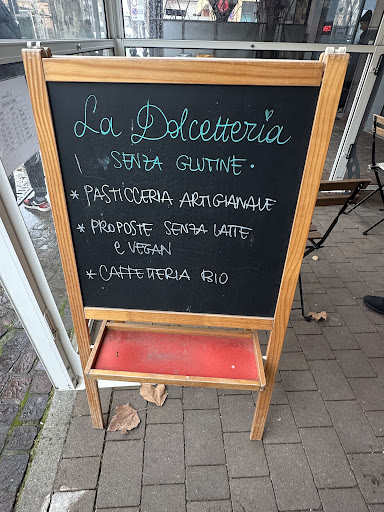 La Dolcetteria
SENZA GLUTINE.
* PASTICCERIA ARTIGIANALE
* PROPOSTE SENZA LATTE
e VEGAN
* CAFFETTERIA BIO